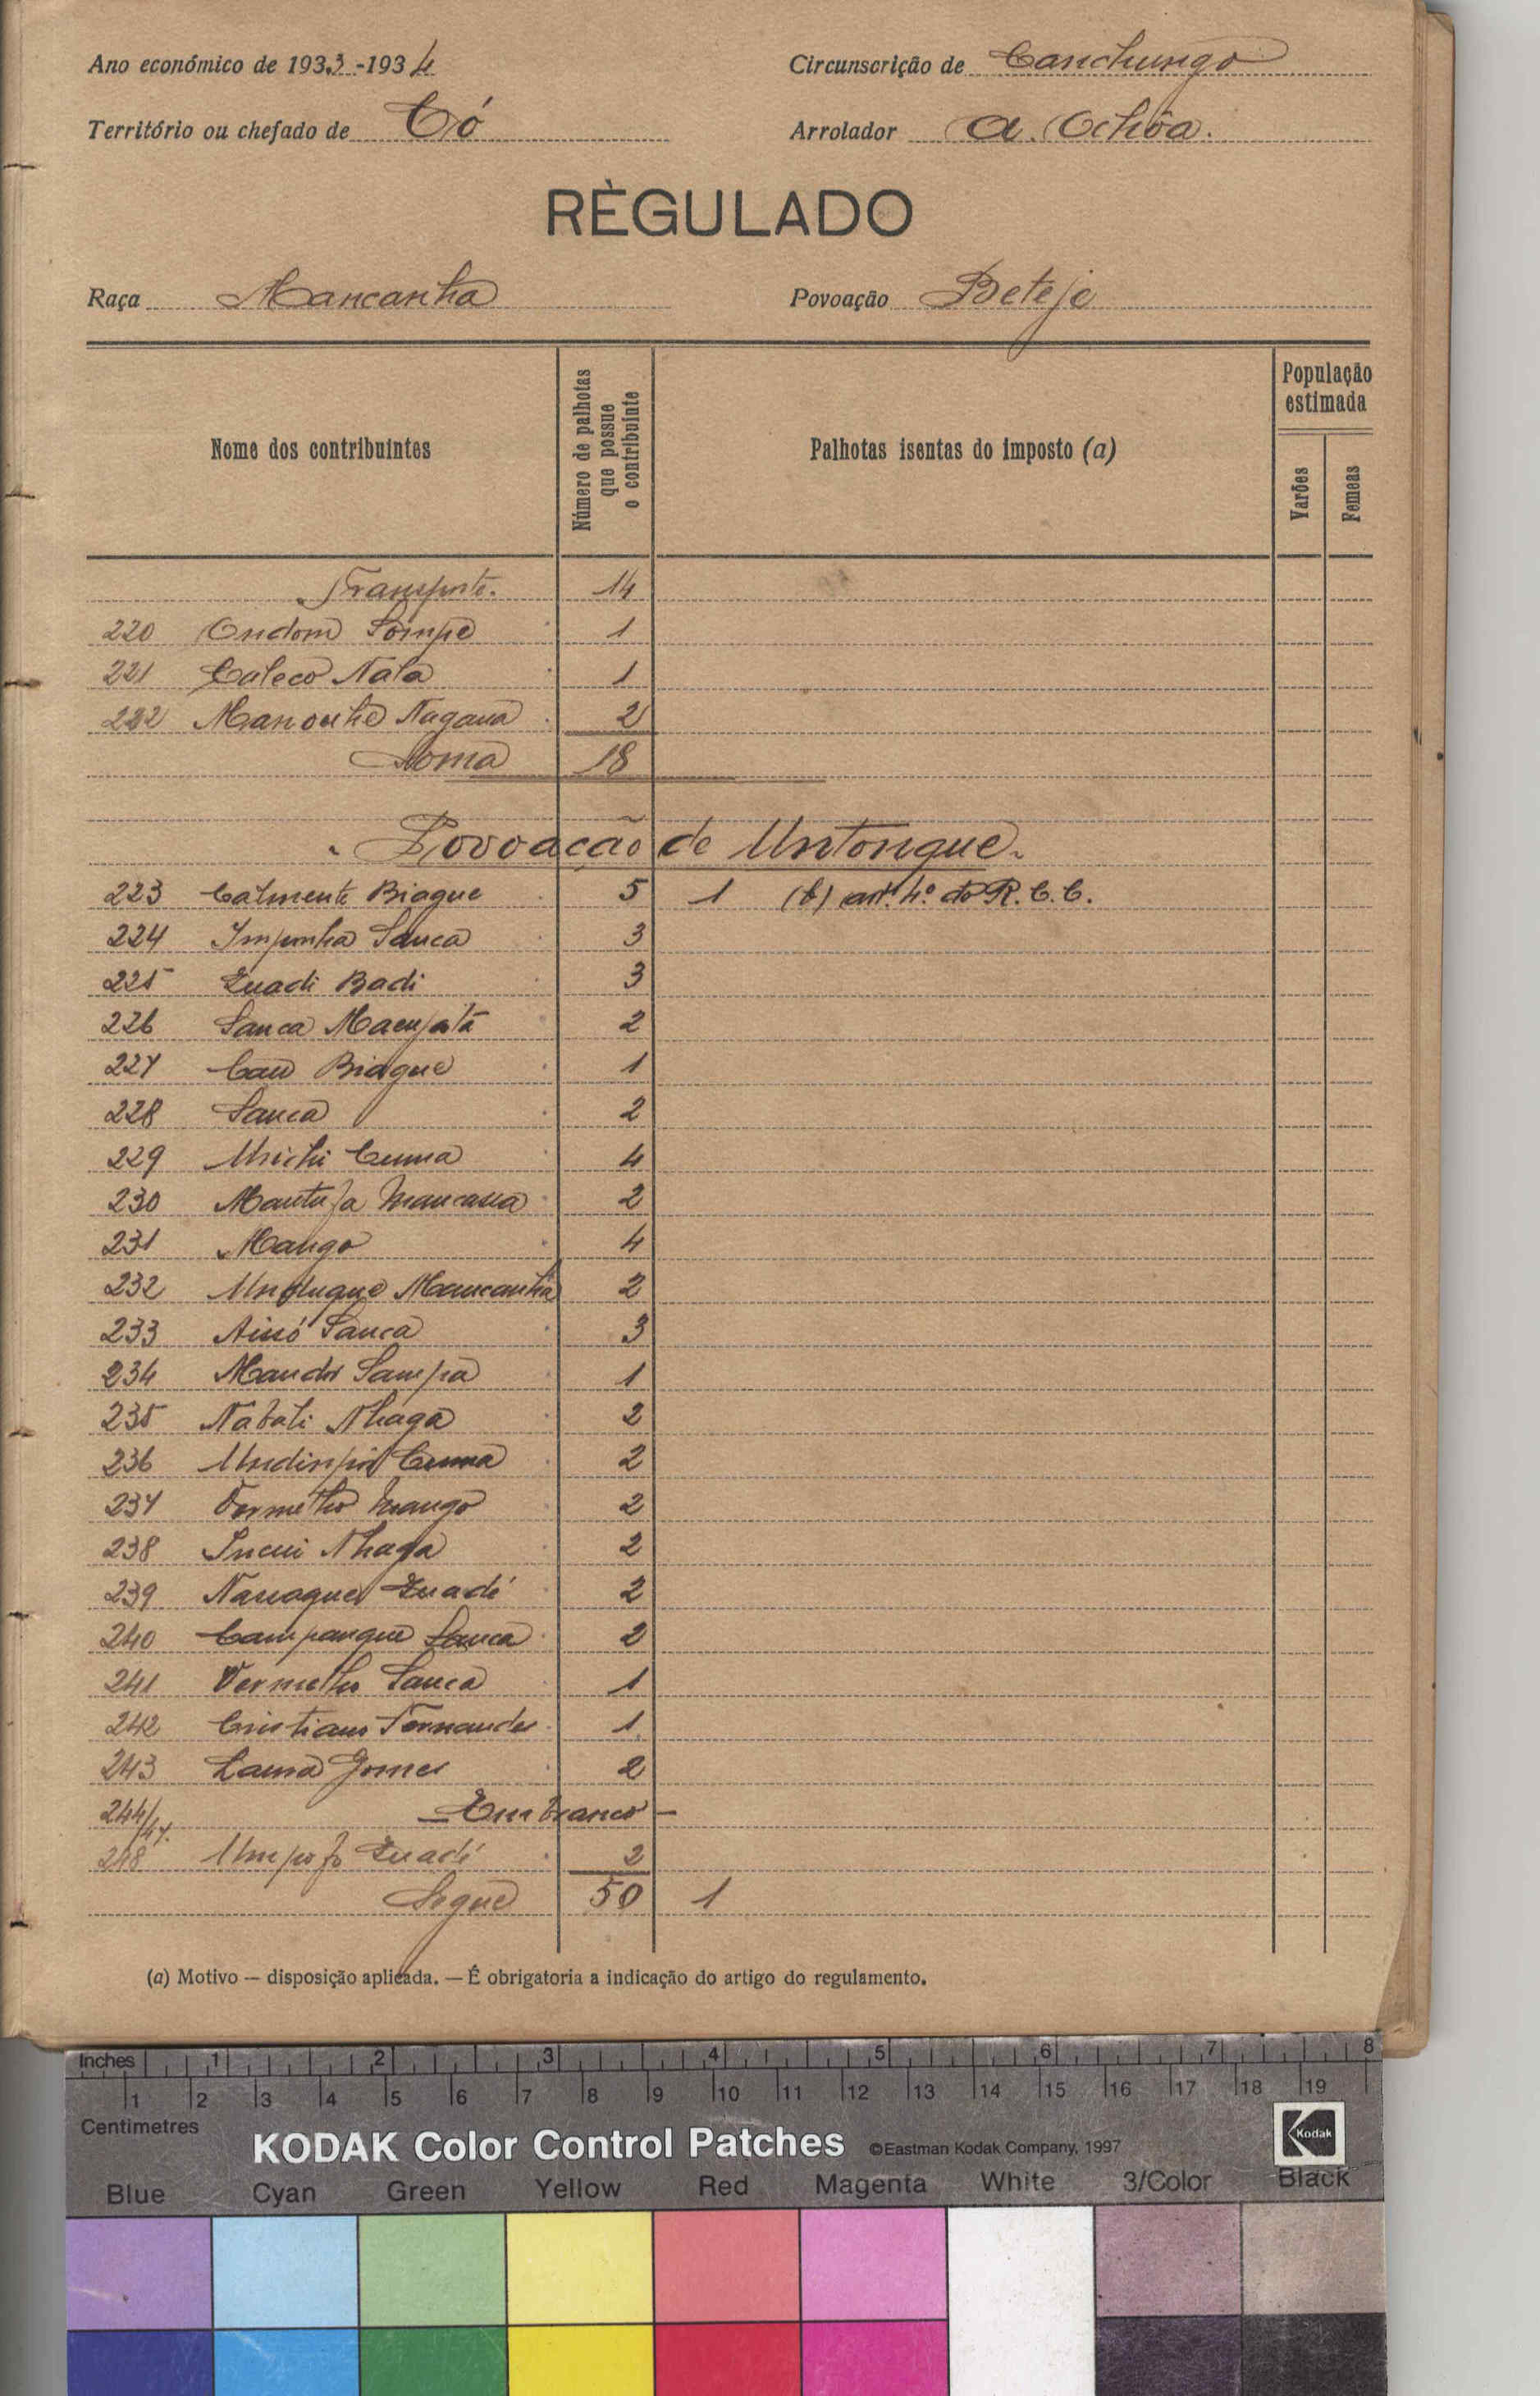 Ano económico de 1933-1934 Circunscrição de Canchungo
Território ou chefado de Có Arrolador A. Ochôa.
RÈGULADO
Raça Mancanha Povoação Beteje
Nome dos contribuintes
Número de palhotas que possue o contribuinte
Palhotas isentas do imposto (a)
População estimada
Varões
Femeas
Transporte. 14
220 Ondom Sompe 1
221 Caleco Nala 1
222 Manouhe Nagana 2
Soma 18
Povoação de Untongue.
223 Calmente Biague 5 1 (b) artº 4º do R. C. C.
224 Impinha Sanca 3
225 Zuadi Badi 3
226 Sanca 2
227 Cau Biague 1
228 Sanca 2
229 Unichi Cunna 4
230 Mantufa Mancasca 2
231 Mango 4
232 Mancanha 2
233 Aissó Sanca 3
234 Mando Sampa 1
235 Nabali Nhaga 2
236 Cunna 2
237 Vermelho Mango 2
238 Incui Nhaga 2
239 Zuadé 2
240 Campangue Sanca 2
241 Vermelho Sanca 1
242 Cristiano Fernandes 1
243 Gomes 2
244/47. — Em branco —
248 Umpofo Zuadé 2
Segue 50 1
(a) Motivo — disposição aplicada. — É obrigatoria a indicação do artigo do regulamento.
Inches 1 2 3 4 5 6 7 8
1 2 3 4 5 6 7 8 9 10 11 12 13 14 15 16 17 18 19
Centimetres
KODAK Color Control Patches ©Eastman Kodak Company, 1997 Kodak
Blue Cyan Green Yellow Red Magenta White 3/Color Black